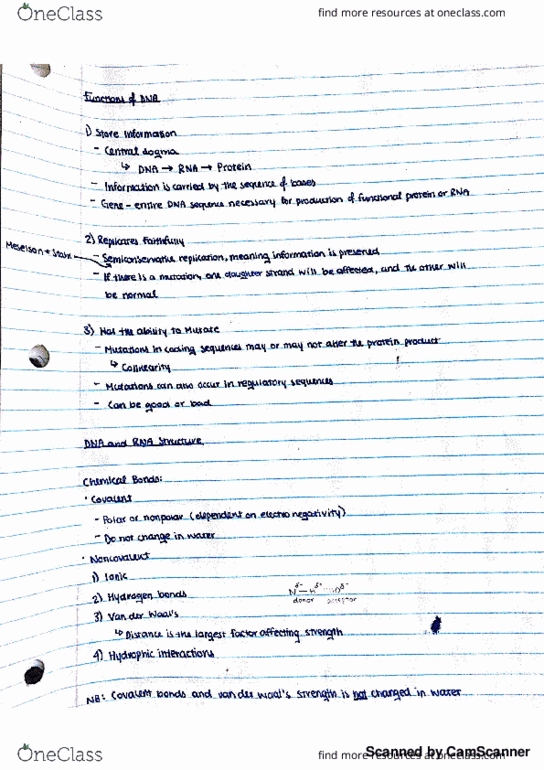 OneClass
find more resources at oneclass.com
Functions of DNA
1) Store Information
- Central dogma
↳ DNA → RNA → Protein
- Information is carried by the sequence of bases
- Gene - entire DNA sequence necessary for production of functional protein or RNA
2) Replicates Faithfully
Meselson + Stahl
- Semiconservative replication, meaning information is preserved
- If there is a mutation, one daughter strand will be affected, and the other will
be normal
3) Has the ability to Mutate
- Mutations in coding sequences may or may not alter the protein product
↳ Colinearity
- Mutations can also occur in regulatory sequences
- Can be good or bad
DNA and RNA Structure
Chemical Bonds:
• Covalent
- Polar or nonpolar (dependent on electro negativity)
- Do not change in water
• Noncovalent
1) Ionic
2) Hydrogen bonds
N δ- — H δ+ ···· O δ-
donor acceptor
3) Van der Waal's
↳ Distance is the largest factor affecting strength
4) Hydrophic interactions
NB: Covalent bonds and van der waal's strength is not changed in water
OneClass
find more resources at oneclass.com
Scanned by CamScanner